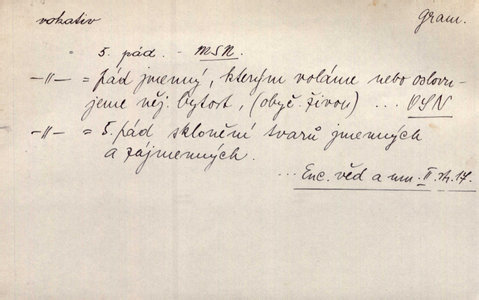 vokativ Gram.
= 5. pád. - MSN.
-〃- = pád jmenný, kterým voláme nebo oslovu-
jeme něj. bytost, (obyč. živou) ... OSN
-〃- = 5. pád sklonění tvarů jmenných
a zájmenných.
... Enc. věd a um. II. 17.